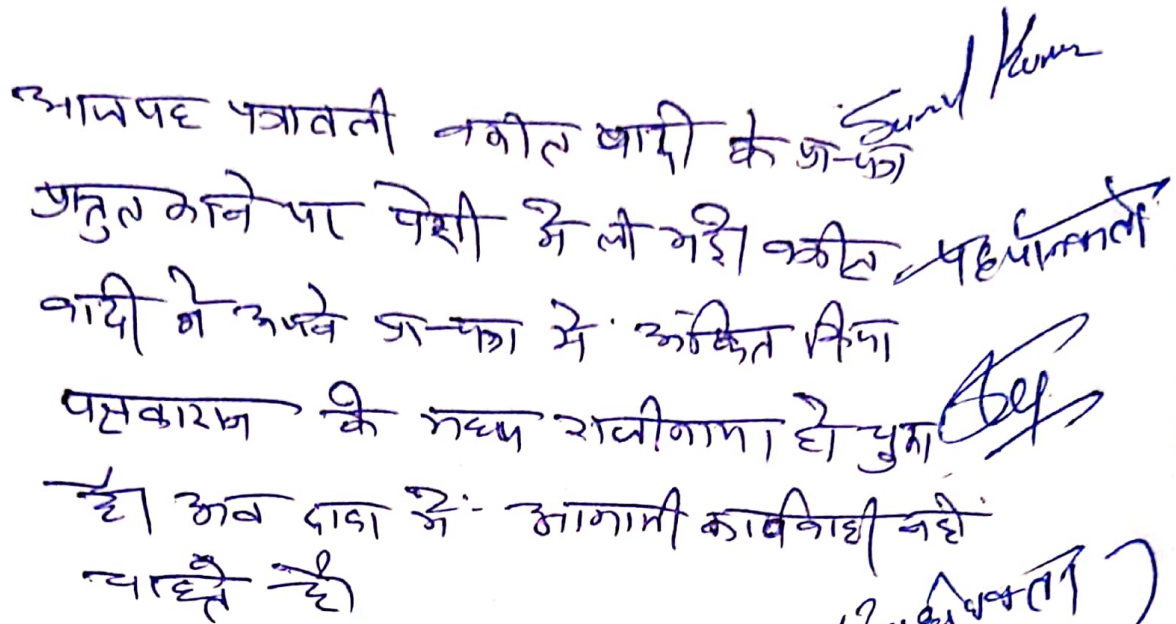 Sunil Kumar
आज यह पत्रावली वकील वादी के प्रा-पत्र
प्रस्तुत करने पर पेशी में ली गई। वकील
वादी ने अपने प्रा-पत्र में अंकित किया
पक्षकारान के मध्य राजीनामा हो चुका
है। अब दावा में आगामी कार्यवाही नहीं
चाहते है।